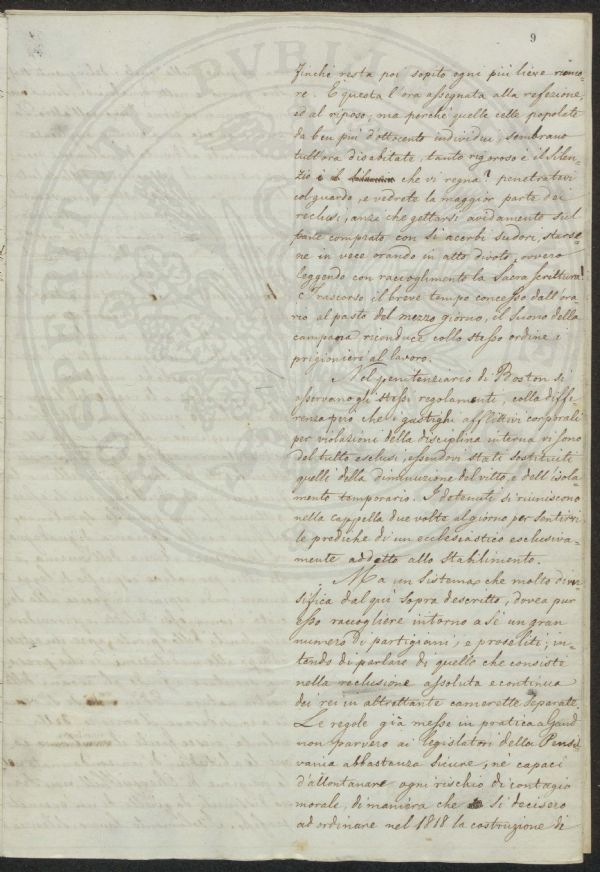 9
finché resta poi sopito ogni più lieve rumo-
re. È questa l'ora assegnata alla refezione,
ed al riposo; ma perché quelle celle popolate
da ben più d'ottocento individui, sembrano
tutt'ora disabitate, tanto rigoroso è il silen-
zio che vi regna? penetratevi
col guardo, e vedrete la maggior parte dei
reclusi, anzi che gettarsi avidamente sul
pane comprato con sì acerbi sudori, starse-
ne in vece orando in atto divoto, ovvero
leggendo con raccoglimento la Sacra Scrittura!
E trascorso il breve tempo concesso dall'ora-
rio al pasto del mezzo giorno, il suono della
campana riconduce collo stesso ordine i
prigionieri al lavoro.
Nel penitenziario di Boston si
osservano gli stessi regolamenti, colla diffe-
renza però che i gastighi afflittivi corporali
per violazioni della disciplina interna vi sono
del tutto esclusi, essendovi stati sostituiti
quelli della diminuzione del vitto, e dell'isola-
mento temporario. I detenuti si riuniscono
nella cappella due volte al giorno per sentirvi
le prediche di un ecclesiastico esclusiva-
mente addetto allo stabilimento.
Ma un sistema che molto diver-
sifica dal quì sopra descritto, dovea pur
esso raccogliere intorno a sé un gran
numero di partigiani, e proseliti; in-
tendo di parlare di quello che consiste
nella reclusione assoluta e continua
dei rei in altrettante camerette separate.
Le regole già messe in pratica a Gand
non parvero ai legislatori della Pensil-
vania abbastanza sicure, né capaci
d'allontanare ogni rischio di contagio
morale, di maniera che si decisero
ad ordinare nel 1818 la costruzione di